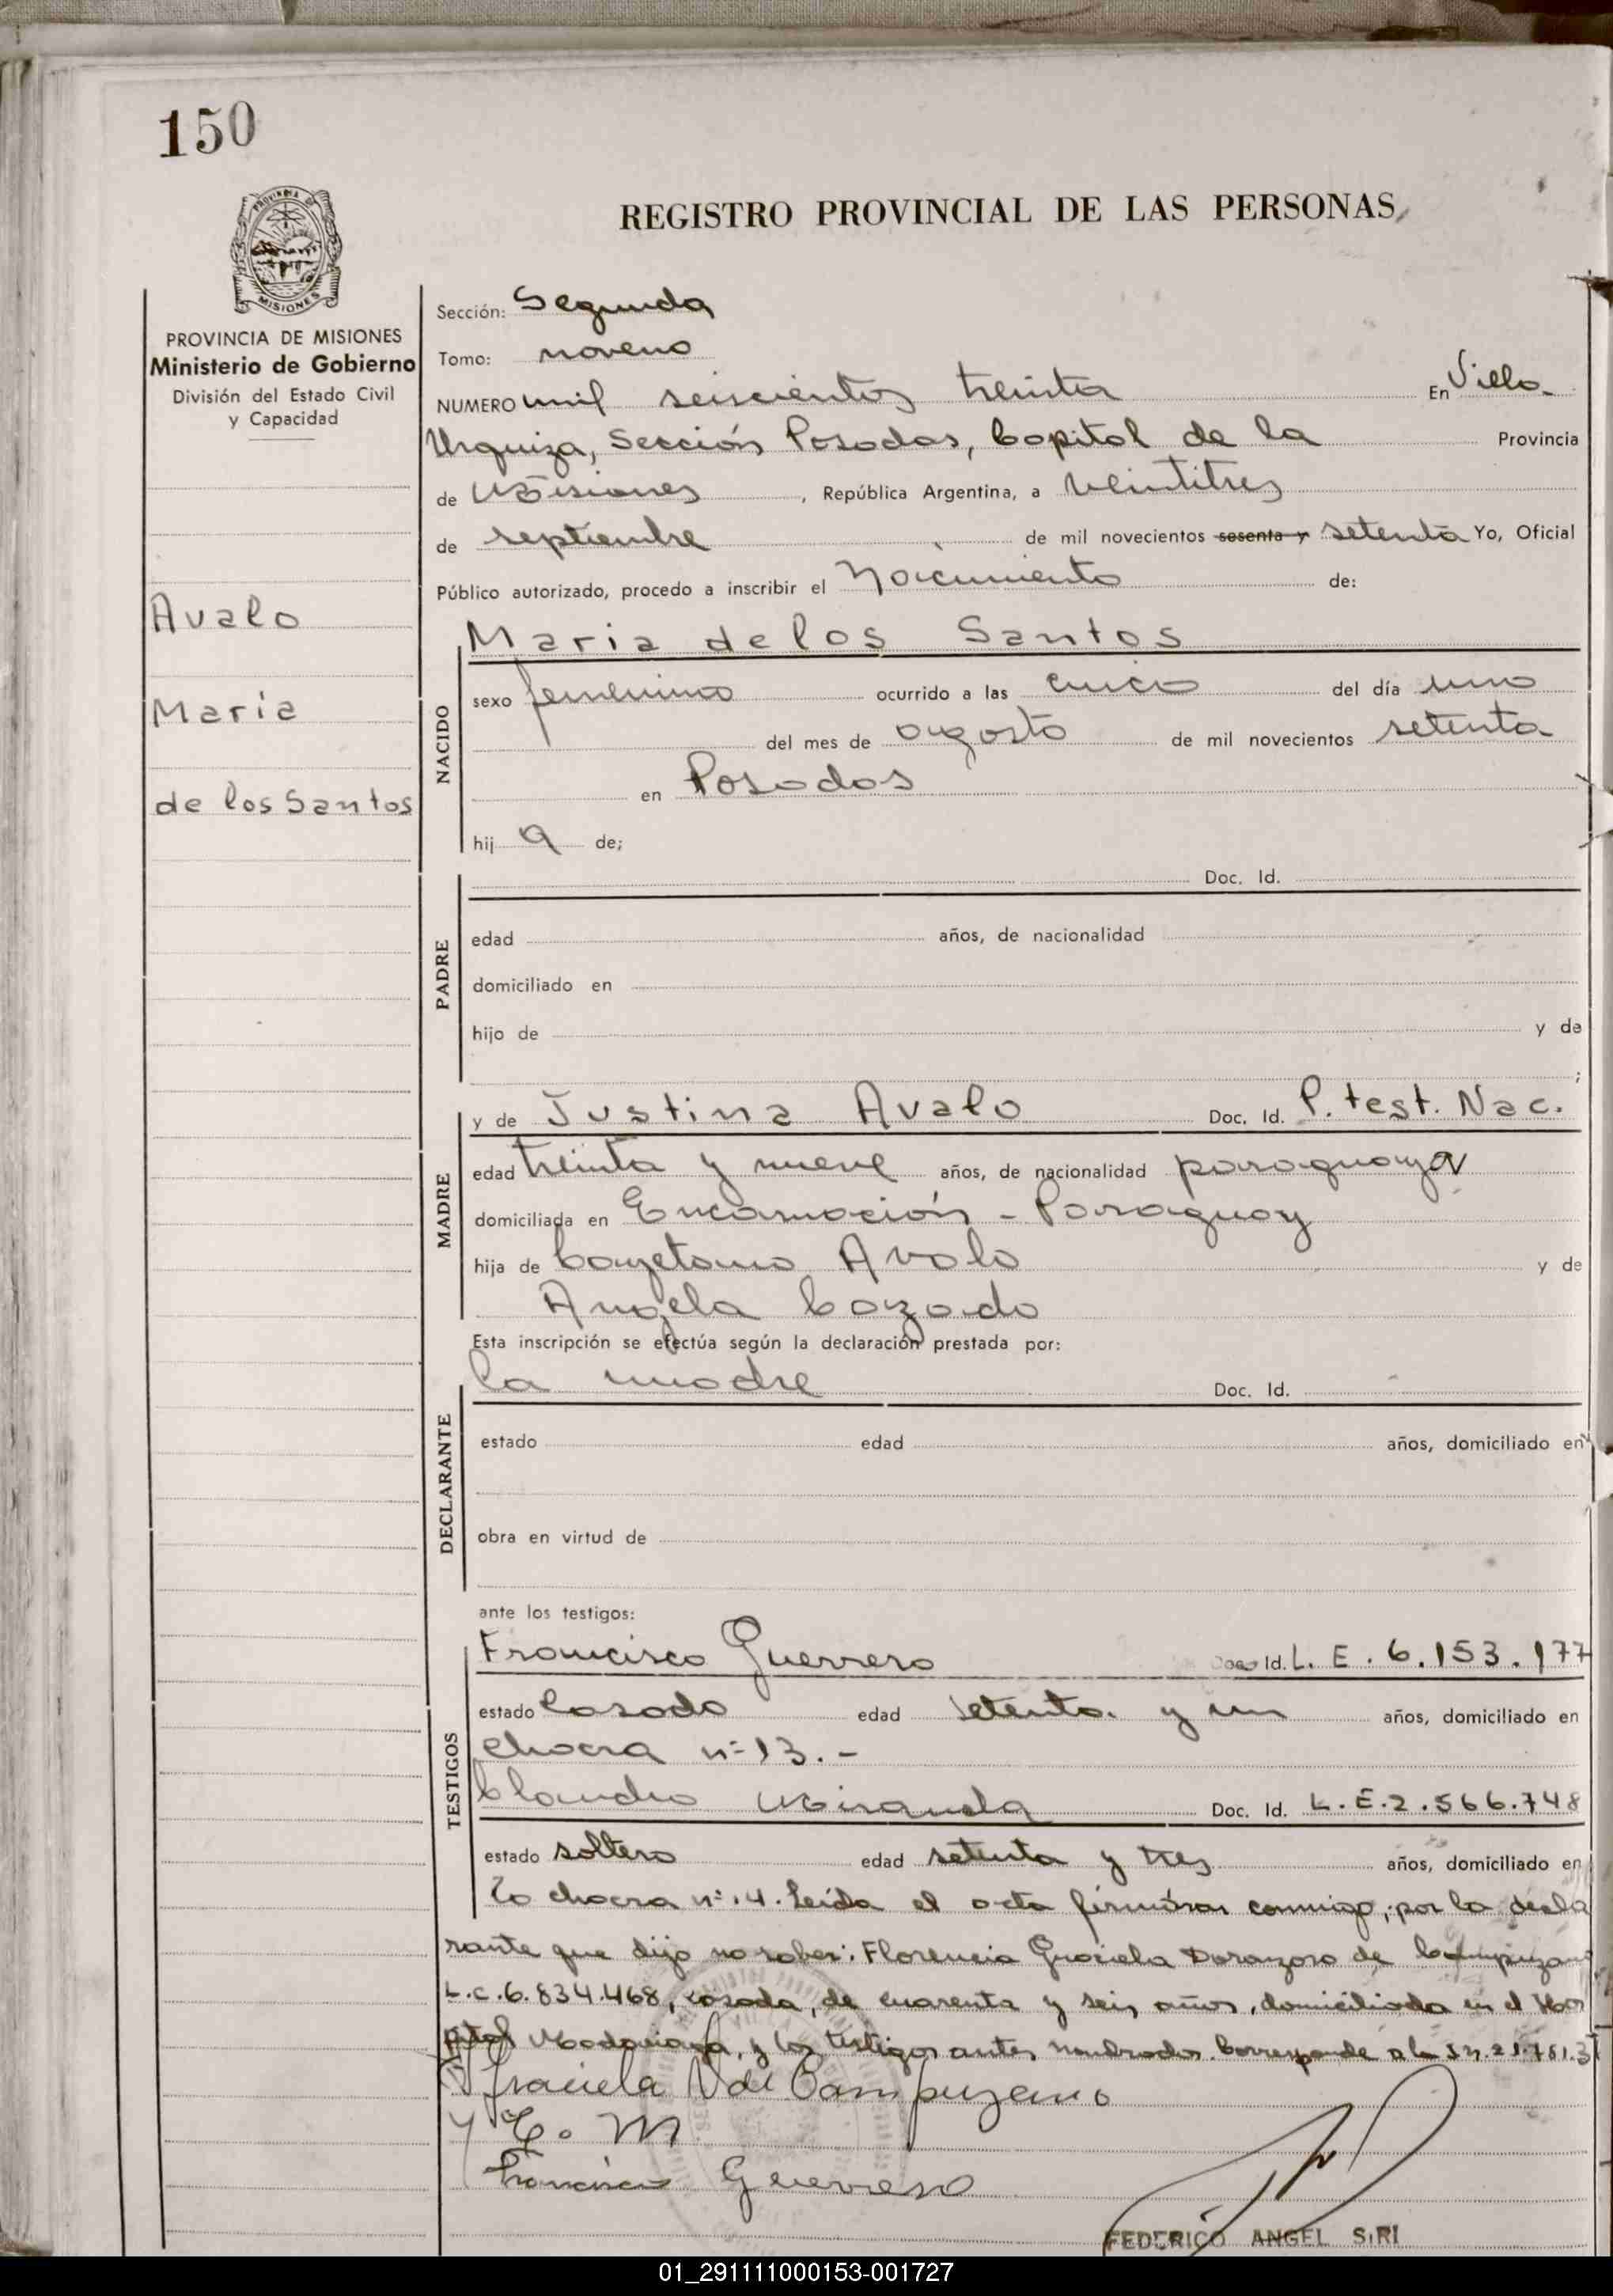 150
REGISTRO PROVINCIAL DE LAS PERSONAS
PROVINCIA DE MISIONES
Ministerio de Gobierno
División del Estado Civil
y Capacidad
Avalo
María
de los Santos
Sección: Segunda
Tomo: noveno
NUMERO mil seiscientos treinta En Villa
Urquiza, Sección Posadas, Capital de la Provincia
de Misiones, República Argentina, a veintitres
de septiembre de mil novecientos sesenta y setenta Yo, Oficial
Público autorizado, procedo a inscribir el Nacimiento de:
NACIDO
Maria de los Santos
sexo femenino ocurrido a las cinco del día uno
del mes de agosto de mil novecientos setenta
en Posadas
hij a de;
PADRE
Doc. Id.
edad años, de nacionalidad
domiciliado en
hijo de y de
;
MADRE
y de Justina Avalo Doc. Id. P. test. Nac.
edad treinta y nueve años, de nacionalidad paraguaya
domiciliada en Encarnación - Paraguay
hija de Cayetano Avalo y de
Angela Cazado
Esta inscripción se efectúa según la declaración prestada por:
DECLARANTE
la madre Doc. Id.
estado edad años, domiciliado en
obra en virtud de
ante los testigos:
TESTIGOS
Francisco Guerrero Doc. Id. L. E. 6.153.177
estado Casado edad setenta y un años, domiciliado en
chacra nº 13.-
Claudio Miranda Doc. Id. L.E.2.566.748
estado soltero edad setenta y tres años, domiciliado en
la chacra nº 14. Leída el acta firmaron conmigo, por la decla
rante que dijo no saber: Florencia Graciela de Campuzano
L.C.6.834.468, casada, de cuarenta y seis años, domiciliada en el Hos
pital Madariaga, y los testigos antes nombrados. Corresponde a la
Graciela de Campuzano
C. M
Francisco Guerrero
FEDERICO ANGEL SIRI
01_291111000153-001727